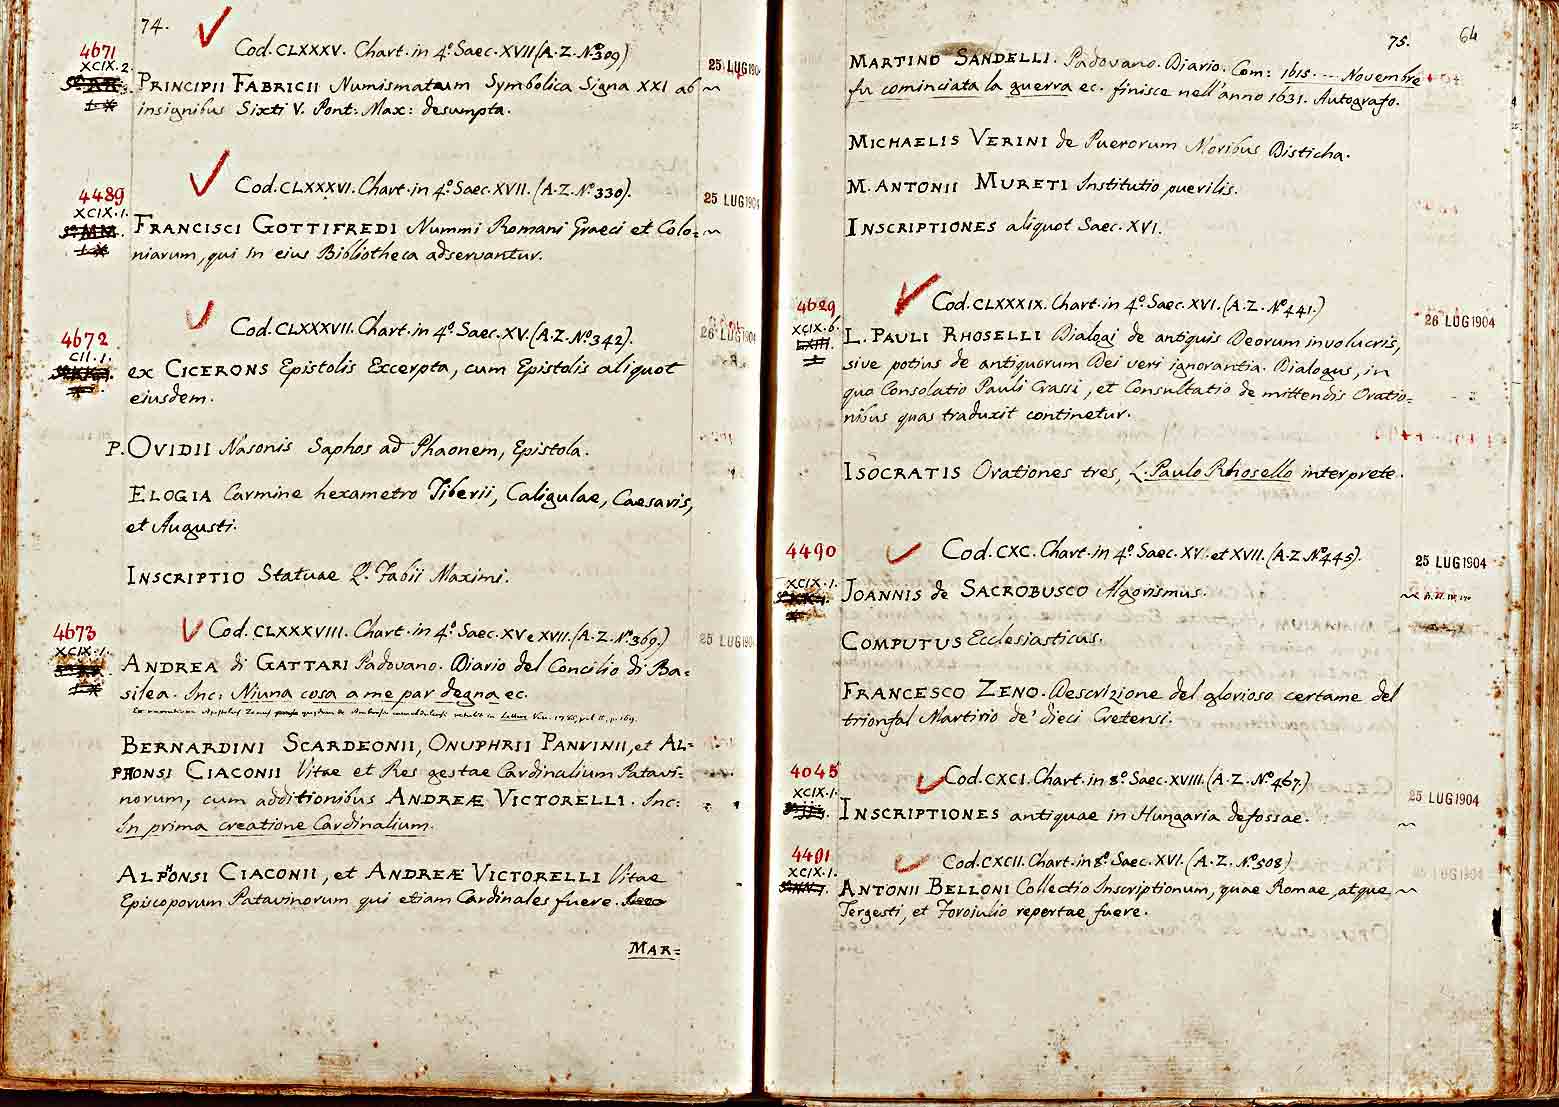 74.
4671
XCIX.2.
Cod. CLXXXV. Chart. in 4º. Saec. XVII (A. Z. Nº. 309)
25 LUG 190
PRINCIPII FABRICII Numismatum Symbolica Signa XXI ab
insignibus Sixti V. Pont: Max: desumpta.
4489
XCIX.1.
Cod. CLXXXVI. Chart. in 4º. Saec. XVII. (A. Z. Nº. 330).
25 LUG 1904
FRANCISCI GOTTIFREDI Nummi Romani Graeci et Colo=
niarum, qui in eius Bibliotheca adservantur.
4672
CII.1.
Cod. CLXXXVII. Chart. in 4º. Saec. XV. (A. Z. Nº. 342).
26 LUG 1904
ex CICERONS Epistolis Excerpta, cum Epistolis aliquot
eiusdem.
P. OVIDII Nasonis Saphos ad Phaonem, Epistola.
ELOGIA Carmine hexametro Tiberii, Caligulae, Caesaris,
et Augusti.
INSCRIPTIO Statuae Q. Fabii Maximi.
4673
XCIX.1.
Cod. CLXXXVIII. Chart. in 4º. Saec. XV e XVII. (A. Z. Nº. 369.)
25 LUG 190
ANDREA di GATTARI Padovano. Diario del Concilio di Ba=
silea. Inc: Niuna cosa a me par degna ec.
BERNARDINI SCARDEONII, ONUPHRII PANVINII, et AL=
PHONSI CIACONII Vitae et Res gestae Cardinalium Patavi=
norum, cum additionibus ANDREÆ VICTORELLI. Inc:
In prima creatione Cardinalium.
ALPHONSI CIACONII, et ANDREÆ VICTORELLI Vitae
Episcoporum Patavinorum qui etiam Cardinales fuere.
MAR=
75.
64
MARTINO SANDELLI. Padovano. Diario. Com: 1615. -- Novembre
fu cominciata la guerra ec. finisce nell'anno 1631. Autografo.
MICHAELIS VERINI de Puerorum Moribus Disticha.
M. ANTONII MURETI Institutio puerilis.
INSCRIPTIONES aliquot Saec. XVI.
4629
XCIX.6.
LXIII.
1
Cod. CLXXXIX. Chart. in 4º. Saec. XVI. (A. Z. Nº. 441.)
26 LUG 1904
L. PAULI RHOSELLI Dialogi de antiquis Deorum involucris,
sive potius de antiquorum Dei veri ignorantia. Dialogus, in
quo Consolatio Pauli Crassi, et Consultatio de mittendis Oratio=
nibus quas traduxit continetur.
ISOCRATIS Orationes tres, L. Paulo Rhosello interprete.
4490
XCIX.1.
Cod. CXC. Chart. in 4º. Saec. XV. et XVII. (A. Z. Nº. 445).
25 LUG 1904
JOANNIS de SACROBUSCO Algorismus.
COMPUTUS Ecclesiasticus.
FRANCESCO ZENO. Descrizione del glorioso certame del
trionfal Martirio de' dieci Cretensi.
4045
XCIX.1.
Cod. CXCI. Chart. in 8º. Saec. XVIII. (A. Z. Nº. 467.)
25 LUG 1904
INSCRIPTIONES antiquae in Hungaria defossae.
4491
XCIX.1.
Cod. CXCII. Chart. in 8º. Saec. XVI. (A. Z. Nº. 508)
25 LUG 1904
ANTONII BELLONI Collectio Inscriptionum, quae Romae, atque
Tergesti, et Forojulio repertae fuere.